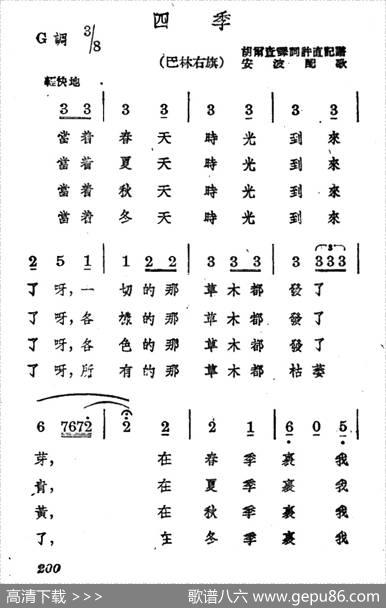 四季
G調 3/8
(巴林右旗)
安波配歌
輕快地
3 3 | 3 3 | 3 3 | 3 3
當着 春天 時光 到來
當着 夏天 時光 到來
當着 秋天 時光 到來
當着 冬天 時光 到來
2 5 1 | 1 2 2 | 3 3 3 | 3 3 3 3
了呀,一 切的那 草木都 發了
了呀,各 樣的那 草木都 發了
了呀,各 色的那 草木都 發了
了呀,所 有的那 草木都 枯萎
6 7672 | 2 2 | 2 1 | 6 0 5
芽, 在 春季 裏 我
青, 在 夏季 裏 我
黃, 在 秋季 裏 我
了, 在 冬季 裏 我
200
高清下载 >>> 歌谱八六 www.gepu86.com